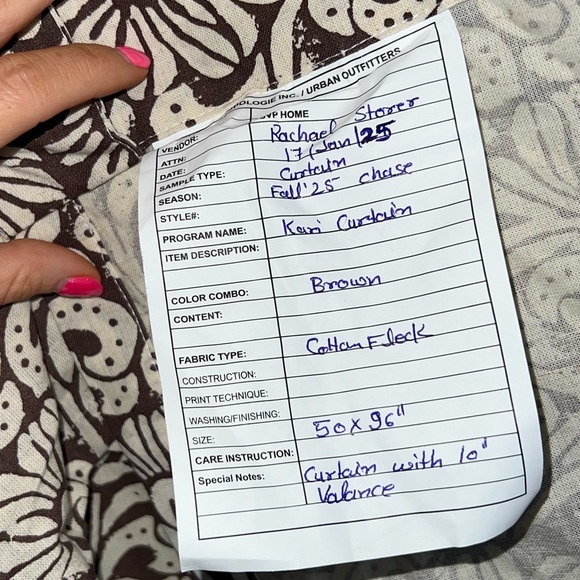 OLOGIE INC. / URBAN OUTFITTERS
VENDOR: VP HOME
ATTN: Rachael Storer
DATE: 17/Jan/25
SAMPLE TYPE: Curtain
SEASON: Fall'25 chase
STYLE#:
PROGRAM NAME: Kari Curtain
ITEM DESCRIPTION:
COLOR COMBO: Brown
CONTENT:
FABRIC TYPE: Cottan Fleck
CONSTRUCTION:
PRINT TECHNIQUE:
WASHING/FINISHING:
SIZE: 50 X 96"
CARE INSTRUCTION:
Special Notes: Curtain with 10"
Valance